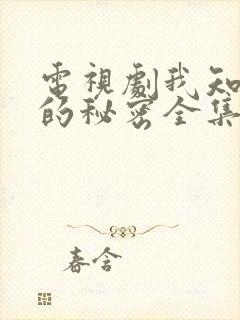 電視劇我知
的秘密全集
春含